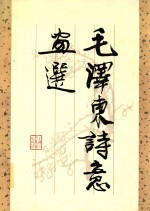 毛澤東詩意
畫選